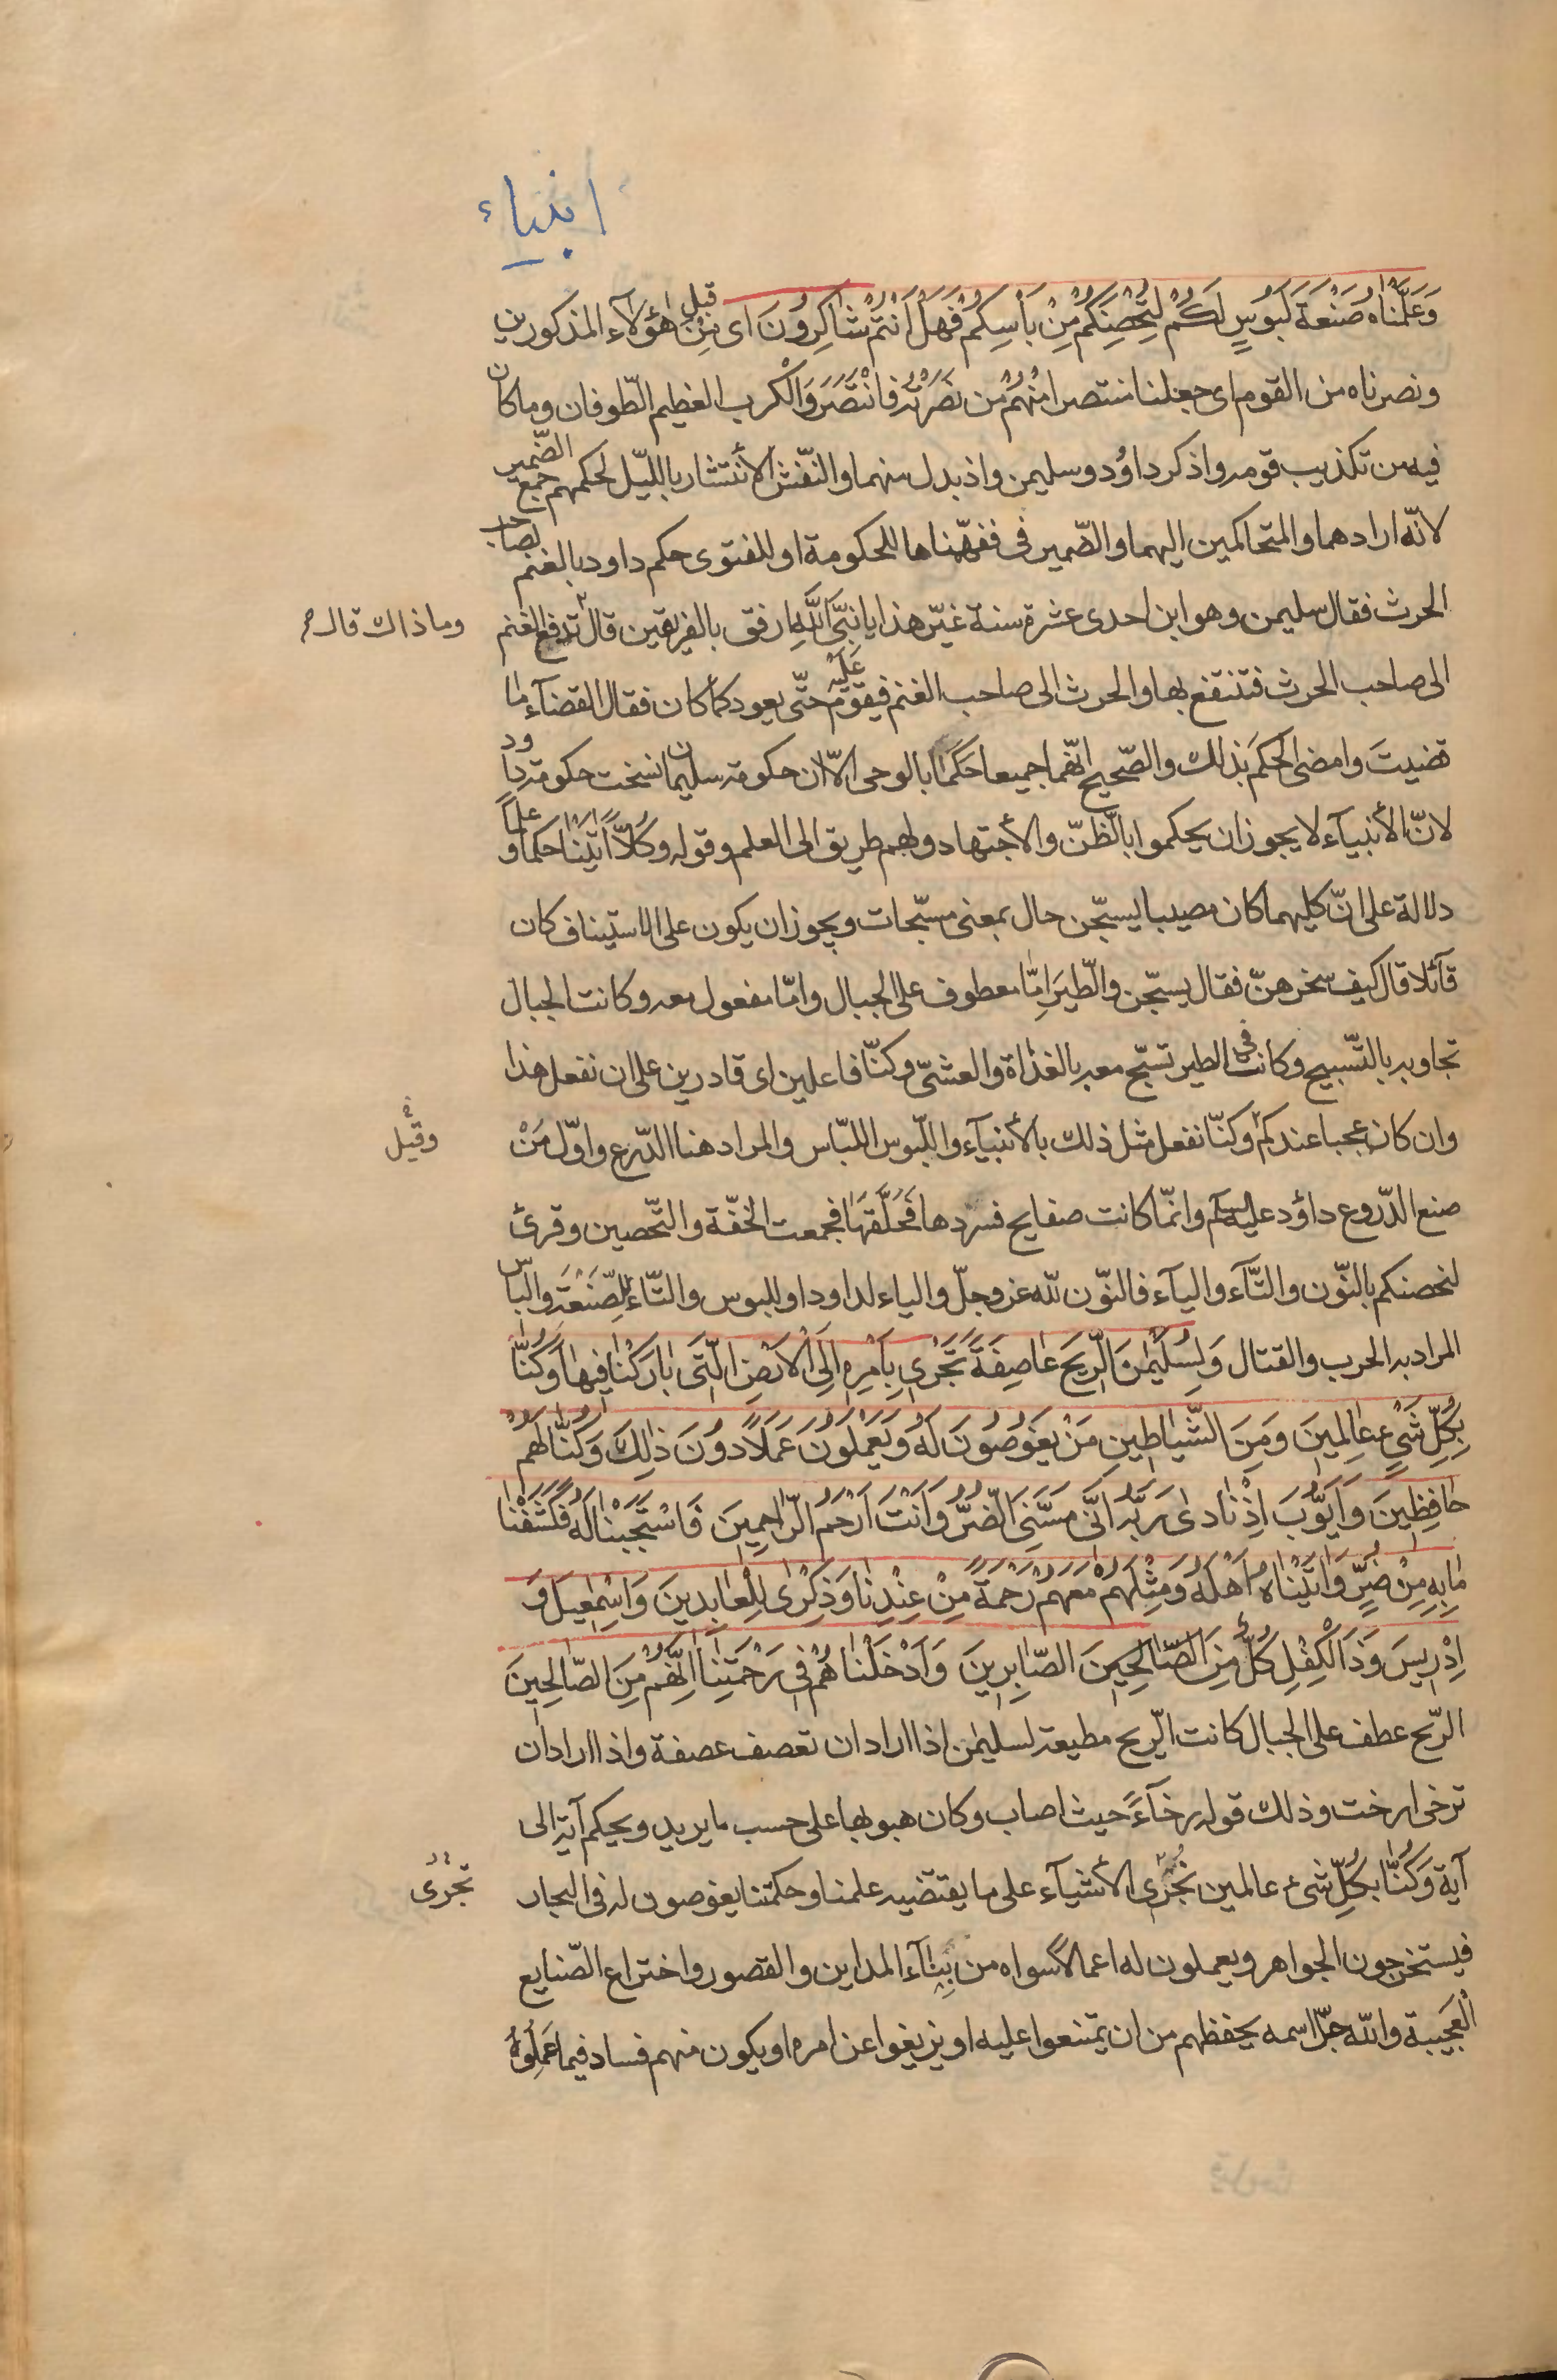 انبياء
وَعَلَّمْنَاهُ صَنْعَةَ لَبُوسٍ لَكُمْ لِتُحْصِنَكُمْ مِنْ بَأْسِكُمْ فَهَلْ اَنْتُمْ شَاكِرُونَ اى مِنْ قبل هؤلآء المذكورين
ونصرناه من القوم اى جعلنا منتصرا مِنْهُمْ من نَصَرْتُهُ فَانْتَصَرَ وَالْكرب العظيم الطّوفان وما كان
فيه من تكذيب قومه واذكر داوُد وسليمن واذ بدل منهما والنّفش الأنتشار بالليّل لحكمهم جمع الضّمير
لانّه ارادهما والمتحاكمين اليهما والضّمير فى ففهّمناها للحكومة او للفتوى حكم داود بالغنم لصاحب
الحرث فقال سليمن وهو ابن احدى عشرة سنة غيّر هذا يا نبىَّ اللّهِ ارفق بالفريقين قال تدفع الغنم
وما ذاك قال
الى صاحب الحرث فتنتفع بها والحرث الى صاحب الغنم فيقوّم عَلَيْهِ حتّى يعود كما كان فقال القضآء ما
قضيتَ وامضى الحكمَ بذلك والصّحيح انّهما جميعا حَكَمَا بالوحى الاّ ان حكومة سليمان نسخت حكومة داود
لانّ الأنبيآء لا يجوز ان يحكموا بالظّنّ والأجتهاد ولهم طريق الى العلم وقوله وَكُلاًّ اٰتَيْنَا حكما وعلماً
دلالة على انّ كليهما كان مصيبا يسبّحن حال بمعنى مسبّحات ويجوز ان يكون على الاستيناف كان
قآئلا قال كيف سخرهنّ فقال يسبّحن والطّيرَ اِمّا معطوف على الجبال وامّا مفعول معه وكانت الجبال
تجاوبه بالتّسبيح وكانت الطير تسبّح معه بالغداة والعشىّ وكنّا فاعلين اى قادرين على ان نفعل هذا
وان كان عجبا عندكم وكنّا نفعل مثل ذلك بالأنبيآء واللّبوس اللبّاس والمراد هنا الدّرع واوّل مَنْ
وقيل
صنع الدّروع داؤد عليه السلم وانّما كانت صفايح فسردها فَحَلَّقَهَا فجمعت الخفّة والتّحصين وقرئ
لنحصنكم بالنّون والتّآء واليآء فالنّون للّه عز وجلّ والياء لداود او للبوس والتّاء للِصّنعَةِ والبأس
المراد به الحرب والقتال وَلِسُلَيْمٰنَ الرّيحَ عَاصِفَةً تَجْرى بِاَمْرِهِ اِلَى الْاَرْضِ الّتى بَارَكْنَا فِيهَا وَكُنَّا
بِكُلِّ شَىْءٍ عَالِمِينَ وَمِنَ الشّيَاطِينِ مَنْ يَغُوصُونَ لَهُ وَيَعْمَلُونَ عَمَلاً دُونَ ذٰلِكَ وَكُنَّا لَهُمْ
حَافِظِينَ وَاَيّوُبَ اِذْ نَادى رَبَّهُ اَنّى مَسَّنِىَ الضّرُّ وَاَنْتَ اَرْحَمُ الرّاحِمِينَ فَاسْتَجَبْنَا لَهُ فَكَشَفْنَا
مَا بِهِ مِنْ ضُرٍّ وَاٰتَيْنَاهُ اَهْلَهُ وَمِثْلَهُمْ مَعَهُمْ رَحْمَةً مِنْ عِنْدِنَا وَذِكْرٰى لِلْعَابِدِينَ وَاِسْمٰعِيلَ وَ
اِدْرِيسَ وَذَا الْكِفْلِ كُلٌّ مِنَ الصَّالِحِينَ الصّابِرِينَ وَاَدْخَلْنَاهُمْ فِى رَحْمَتِنَا اِنَّهُمْ مِنَ الصّالِحِينَ
الرّيح عطف على الجبال كانت الرّيح مطيعة لسليمٰن اذا اراد ان تعصف عصفة واذا اراد ان
ترخى ارخت وذلك قوله رخآءً حيث اصاب وكان هبوبها على حسب ما يريد ويحكم آية الى
آية وَكُنّا بكُلِّ شىء عالمين نُجْرى الأشيآء على ما يقتضيه علمنا وحكمتنا يغوصون له فى البحار
تجرى
فيستخرجون الجواهر ويعملون له اعمالا سواه من بِنآء المداين والقصور واختراع الصّنايع
الْعَجيبة واللّه جلّ اسمه يحفظهم من ان يمتنعوا عليه او يزيغوا عن امره او يكون منهم فساد فيما عَمِلُوهُ